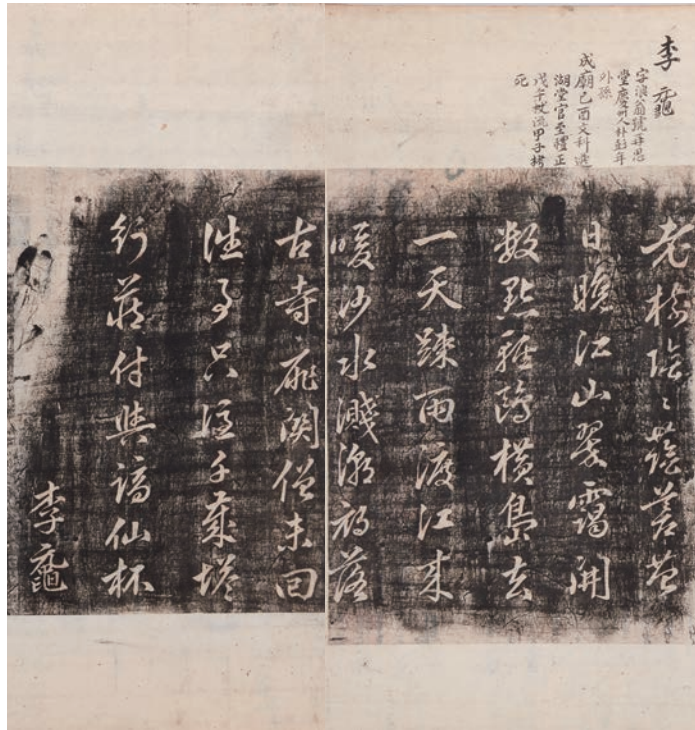 李黿
字浪翁號再思
堂慶州人朴彭年
外孫
成廟己酉文科選
湖堂官至禮正
戊午被流甲子栲
死
老樹陰〻蒼苔
日江山翠靄開
數點輕鷗橫島去
一天疎雨渡江來
暖沙水濺潮初落
古寺扉関僧未回
往事只千塔
行藏付與謫仙杯
李黿